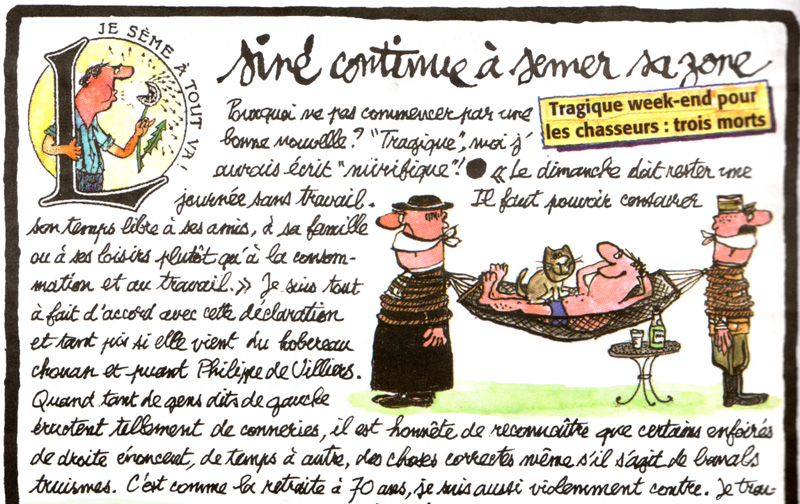 JE SÈME À TOUT VA!
L
Siné continue à semer sa zone
Tragique week-end pour
les chasseurs : trois morts
Pourquoi ne pas commencer par une
bonne nouvelle? "Tragique", moi j'
aurais écrit "mirifique"! ● « Le dimanche doit rester une
journée sans travail. Il faut pouvoir consacrer
son temps libre à ses amis, à sa famille
ou à ses loisirs plutôt qu'à la consom-
mation et au travail. » Je suis tout
à fait d'accord avec cette déclaration
et tant pis si elle vient du hobereau
chouan et puant Philippe de Villiers.
Quand tant de gens dits de gauche
éructent tellement de conneries, il est honnête de reconnaître que certains enfoirés
de droite énoncent, de temps à autre, des choses correctes même s'il s'agit de banals
truismes. C'est comme la retraite à 70 ans, je suis aussi violemment contre. Je trou-